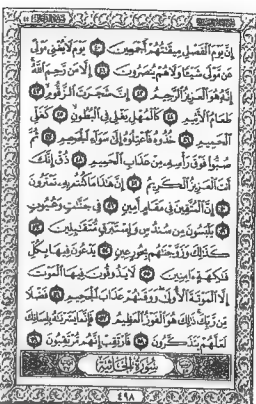 إِنَّ يَوْمَ ٱلْفَصْلِ مِيقَٰتُهُمْ أَجْمَعِينَ ٤٠ يَوْمَ لَا يُغْنِى مَوْلًى
عَن مَّوْلًى شَيْـًٔا وَلَا هُمْ يُنصَرُونَ ٤١ إِلَّا مَن رَّحِمَ ٱللَّهُ
إِنَّهُۥ هُوَ ٱلْعَزِيزُ ٱلرَّحِيمُ ٤٢ إِنَّ شَجَرَتَ ٱلزَّقُّومِ ٤٣
طَعَامُ ٱلْأَثِيمِ ٤٤ كَٱلْمُهْلِ يَغْلِى فِى ٱلْبُطُونِ ٤٥ كَغَلْىِ
ٱلْحَمِيمِ ٤٦ خُذُوهُ فَٱعْتِلُوهُ إِلَىٰ سَوَآءِ ٱلْجَحِيمِ ٤٧ ثُمَّ
صُبُّوا۟ فَوْقَ رَأْسِهِۦ مِنْ عَذَابِ ٱلْحَمِيمِ ٤٨ ذُقْ إِنَّكَ
أَنتَ ٱلْعَزِيزُ ٱلْكَرِيمُ ٤٩ إِنَّ هَٰذَا مَا كُنتُم بِهِۦ تَمْتَرُونَ
٥٠ إِنَّ ٱلْمُتَّقِينَ فِى مَقَامٍ أَمِينٍ ٥١ فِى جَنَّٰتٍ وَعُيُونٍ
٥٢ يَلْبَسُونَ مِن سُندُسٍ وَإِسْتَبْرَقٍ مُّتَقَٰبِلِينَ ٥٣
كَذَٰلِكَ وَزَوَّجْنَٰهُم بِحُورٍ عِينٍ ٥٤ يَدْعُونَ فِيهَا بِكُلِّ
فَٰكِهَةٍ ءَامِنِينَ ٥٥ لَا يَذُوقُونَ فِيهَا ٱلْمَوْتَ
إِلَّا ٱلْمَوْتَةَ ٱلْأُولَىٰ وَوَقَىٰهُمْ عَذَابَ ٱلْجَحِيمِ ٥٦ فَضْلًا
مِّن رَّبِّكَ ذَٰلِكَ هُوَ ٱلْفَوْزُ ٱلْعَظِيمُ ٥٧ فَإِنَّمَا يَسَّرْنَٰهُ بِلِسَانِكَ
لَعَلَّهُمْ يَتَذَكَّرُونَ ٥٨ فَٱرْتَقِبْ إِنَّهُم مُّرْتَقِبُونَ ٥٩
سُورَةُ الجَاثِيَةِ
٤٩٨